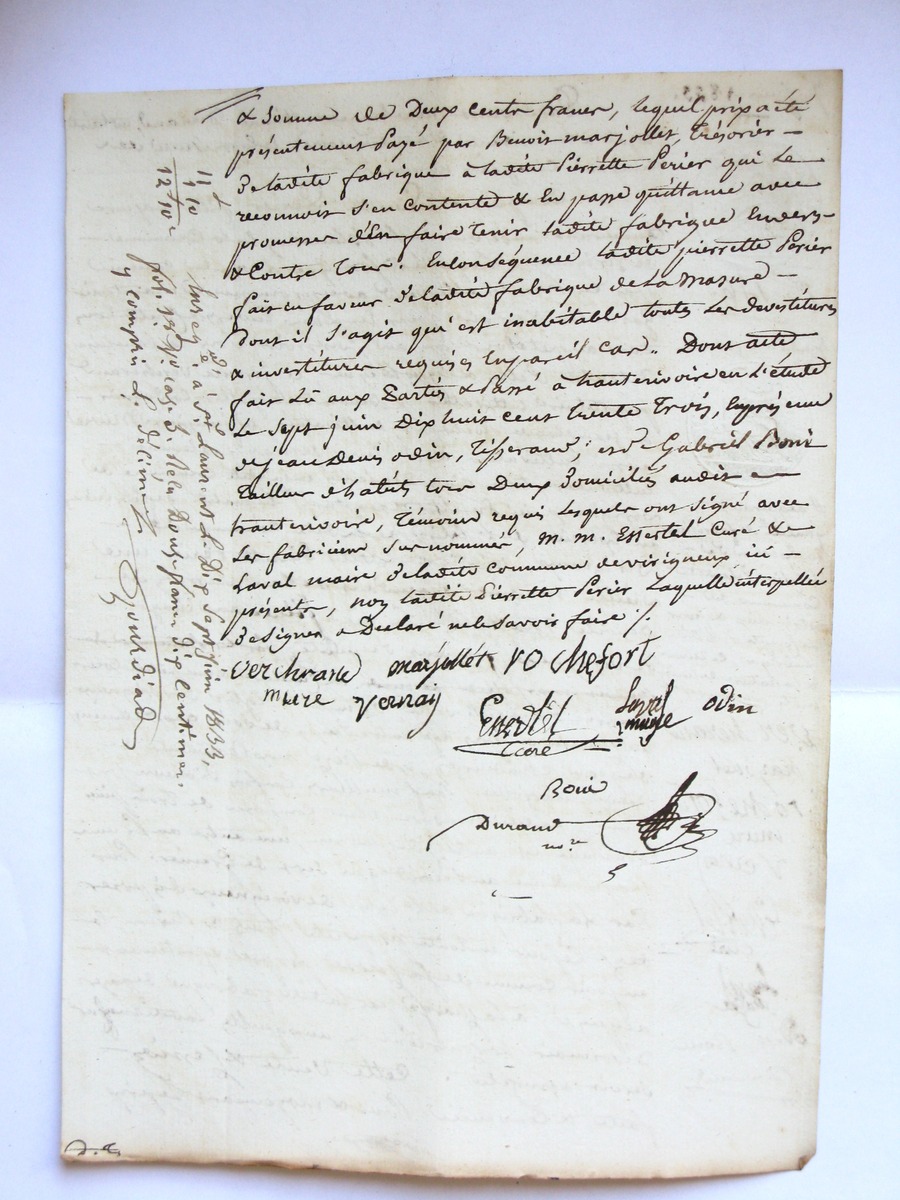 & somme de Deux cents francs, lequel prix a été
présentement Payé par Benoit marjollet, trésorier
de ladite fabrique à ladite Pierrette Perier qui le
reconnoit s'en contente & En passe quittance avec
promesse d'En faire tenir ladite fabrique Envers
& Contre Tous. Enconséquence ladite pierrette Périer
fait en faveur de ladite fabrique de La Masure
dont il s'agit qu'est inabitable toutes les devestitures
& investitures requises Enpareil cas. Dont acte
fait Lu aux Parties & Passé à hauterivoire en L'étude
Le sept juin Dix huit cent trente Trois, Enprésence
de jean Denis odin, Tisserand, et de Gabriel Boni
tailleur d'habits tous Deux Domiciliés audit
hauterivoire, Témoins requis lesquels ont signé avec
Les fabriciens sus nommés, M. M. Essertel Curé &
Laval maire de ladite commune de virigneux ici
présents, non ladite Pierrette Périer Laquelle interpellée
de signer a Déclaré ne le savoir faire /.
verchrand marjollet rochefort
mure vernay
Essertel
curé
Laval
maire
odin
Boni
Durand
no.re
11
1 10
12 10
Enreg. à St Laurent Le Dix Sept juin 1833,
fol. case 3. Reçu Douze francs dix centimes
y compris L. décime